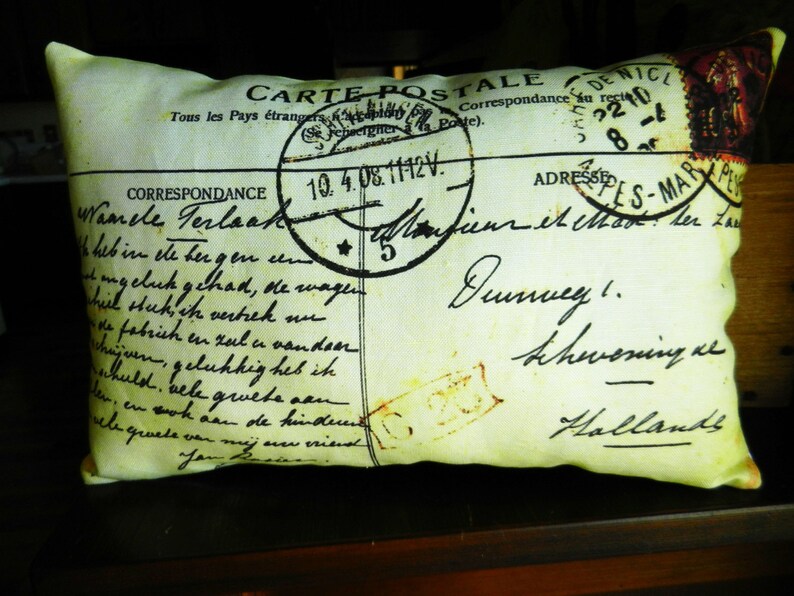 CARTE POSTALE
Tous les Pays étrangers n'acceptent pas Correspondance au recto
(Se renseigner à la Poste).
SCHEVENINGEN
10.4.08.11-12V.
5
GARE DE NICE
22 10
8 -4
ALPES-MAR
CORRESPONDANCE
ADRESSE
Waarde Terlaak
Ik heb in de bergen een
ongeluk gehad, de wagen
stuk, ik vertrek nu
de fabriek en zal u vandaar
schrijven, gelukkig heb ik
schuld. vele groete aan
en ook aan de kinderen
vele groete van mij uw vriend
Jan
Monsieur et Mad. ter Laa
Duinweg 1.
Scheveningue
Hollande